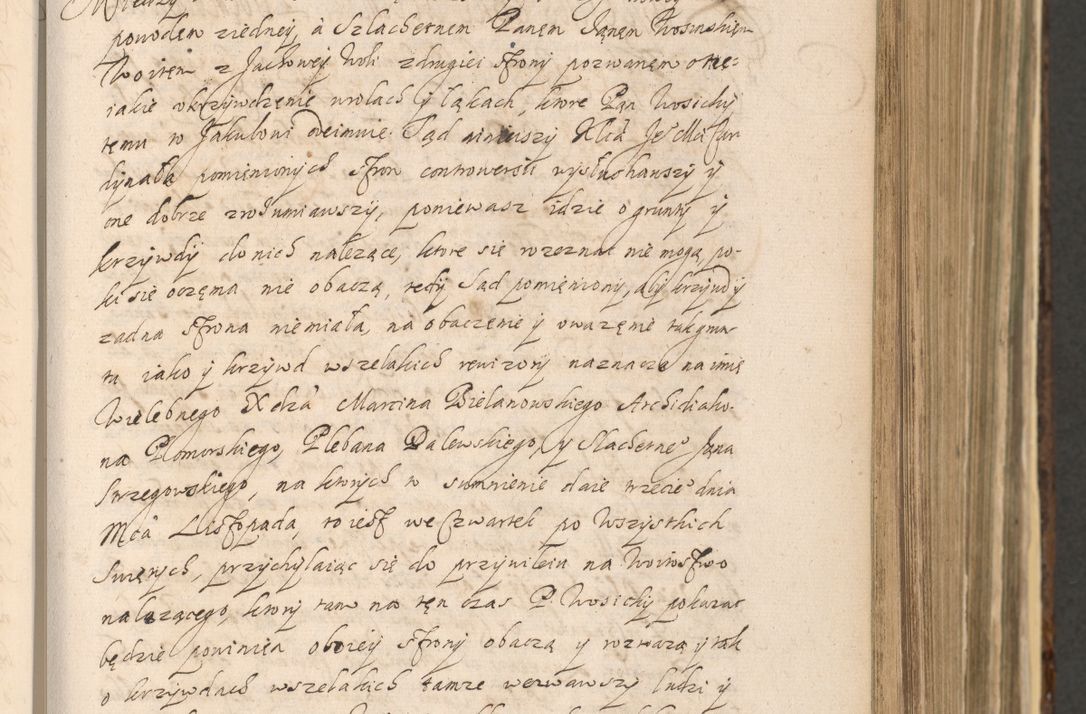 powodem ziedney, à Szlachetnem Panem Janem Wosinskiem
Woitem z Jackowej Woli z drugiei strony pozwanem o nie=
iakie vkrzywdzenie w rolach y łąkach, ktore Pan Wosicky
temu to Jakubowi odeimuie. Sąd ninieiszy Xcia Je° Mci Car
dynała pomienionych stron controwersii wysłuchawszy y
one dobrze zrozumiawszy, poniewasz idzie o grunty y
krzywdy do nich nalezące, ktore się rozeznac nie mogą, po-
ki się oczema nie obaczą, tedy Sąd pomieniony, aby krzywdy
zadna strona niemiała, na obaczenie y vwazenie tak grun-
tu iako y krzywd wszelakich rewizory naznacza na imię
Wielebnego Xdza Marcina Bielanowskiego Archidiako-
na Pomorskiego, Plebana Dalewskiego, y Slachetne° Jana
Strzegowskiego, na ktorych to sumnienie daie trzecie° dnia
Mca Listopada, to iest we czwartek po Wszystkich
Swiętych, przychylaiąc się do przywileiu na Woitostwo
nalezącego, ktory tam na ten czas P. Wosicky pokazac
będzie powinien oboiey strony obaczą y rozwazą y tak
o krzywdach wszelakich tamze wezwawszy ludzi y